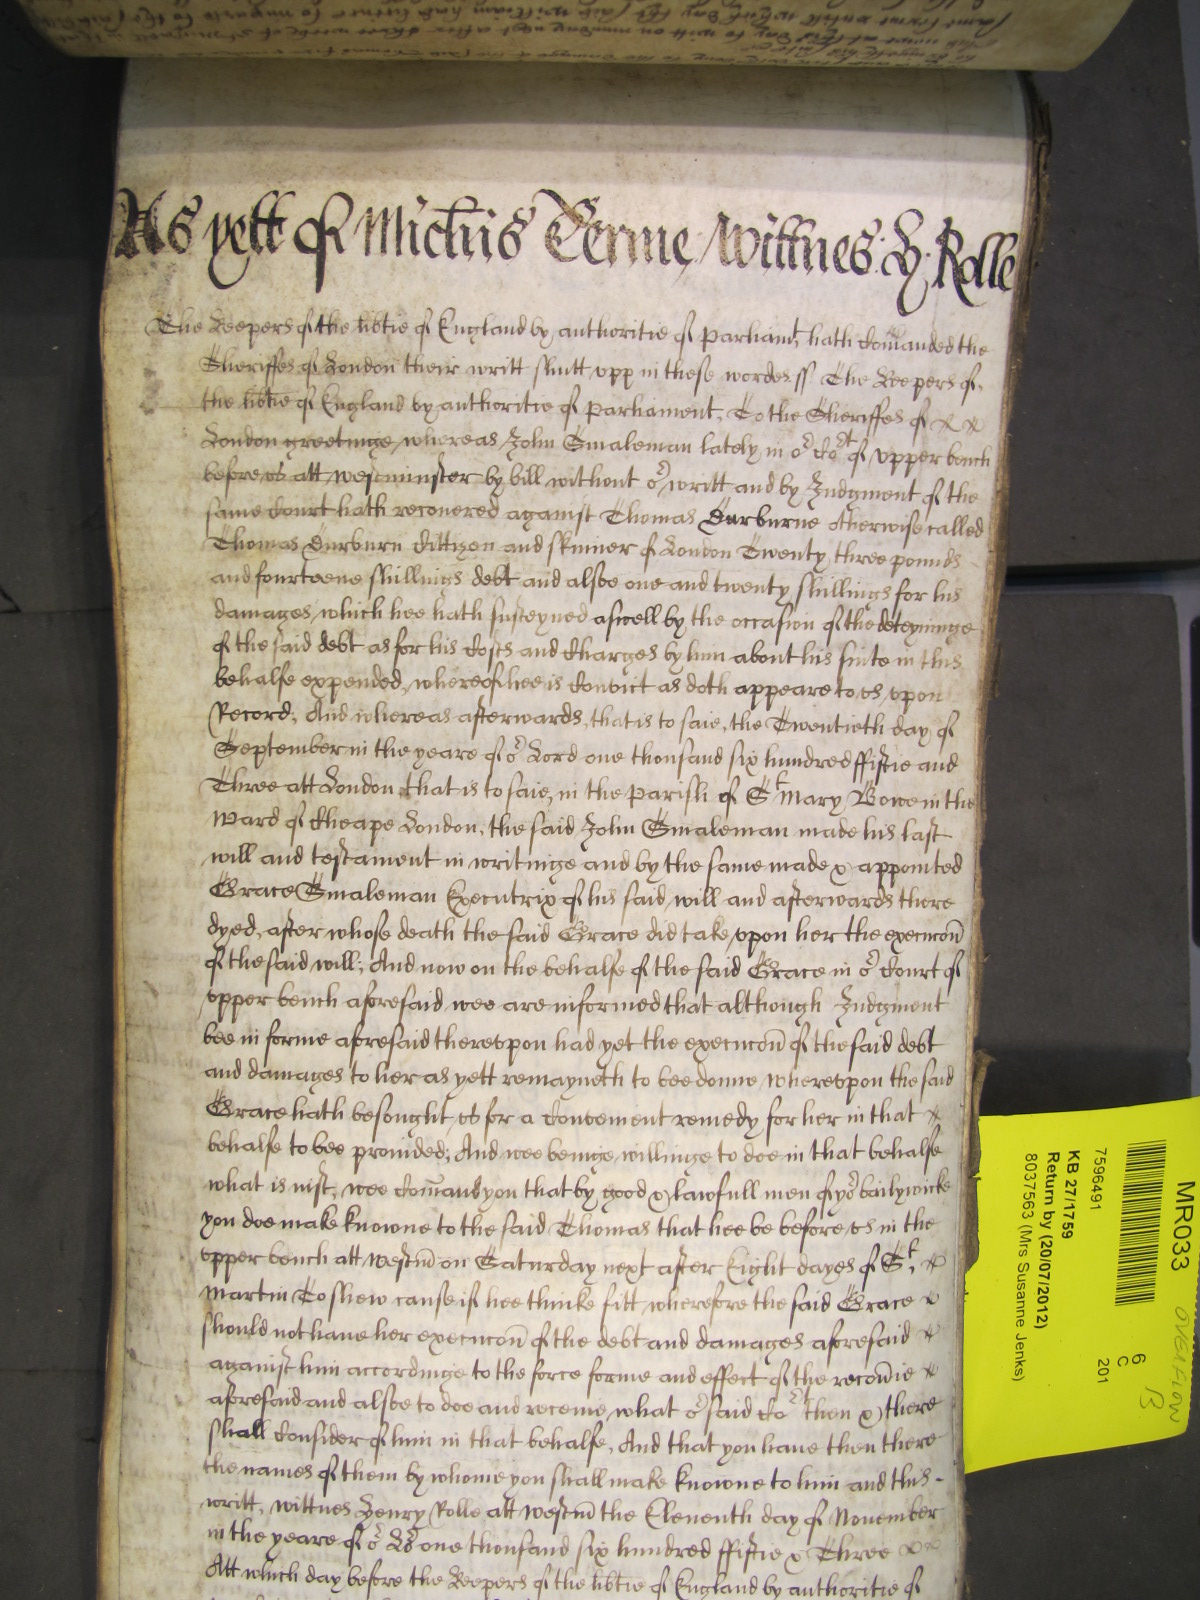 As yett of Michis Terme Wittnes: H: Rolle
The Keepers of the libtie of England by authoritie of Parliamt, hath Comanded the
Sheriffes of London their writt shutt upp in these wordes ss The Keepers of
the libtie of England by authoritie of Parliament, To the Sheriffes of
London greetinge, whereas John Smaleman lately in or Cort of upper bench
before us att westminster by bill without or writt and by Judgment of the
same Court hath recovered against Thomas Durburne otherwise called
Thomas Durburn Cittizen and skinner of London Twenty three pounds
and fourteene shillings debt and alsoe one and twenty shillings for his
damages, which hee hath susteyned aswell by the occasion of the deteyninge
of the said debt as for his Costs and Charges by him about his suite in this
behalfe expended, whereof hee is Convict as doth appeare to us, upon
Record; And whereas afterwards, that is to saie, the Twentieth day of
September in the yeare of or Lord one thousand six hundred fiftie and
Three att London that is to saie, in the Parish of St Mary Bowe in the
Ward of Cheape London, the said John Smaleman made his last
will and testament in writinge and by the same made & appointed
Grace Smaleman Executrix of his said will and afterwards there
dyed, after whose death the said Grace did take upon her the execucon
of the said will; And now on the behalfe of the said Grace in or Court of
upper bench aforesaid wee are informed that although Judgment
bee in forme aforesaid thereupon had yet the execucon of the said debt
and damages to her as yett remayneth to bee donne, whereupon the said
Grace hath besought us for a Convenient remedy for her in that
behalfe to bee provided; And wee beinge willinge to doe in that behalfe
what is iust, wee Comand you that by good & lawfull men of yor bailywicke
you doe make knowne to the said Thomas that hee be before us in the
upper bench att westm on Saturday next after Eight dayes of St.
Martin To shew cause if hee thinke fitt, wherefore the said Grace
should not have her execucon of the debt and damages aforesaid
against him accordinge to the force forme and effect of the recovie
aforesaid and alsoe to doe and receive, what or said Cort then & there
shall Consider of him in that behalfe, And that you have then there
the names of them by whome you shall make knowne to him and this -
writt, wittnes Henry Rolle att westm the Eleventh day of November
in the yeare of or Lo: one thousand six hundred fiftie & Three
Att which day before the Keepers of the libtie of England by authoritie of
MR033
7596491
KB 27/1759
Return by (20/07/2012)
8037563 (Mrs Susanne Jenks)
6
C
201
OVERFLOW